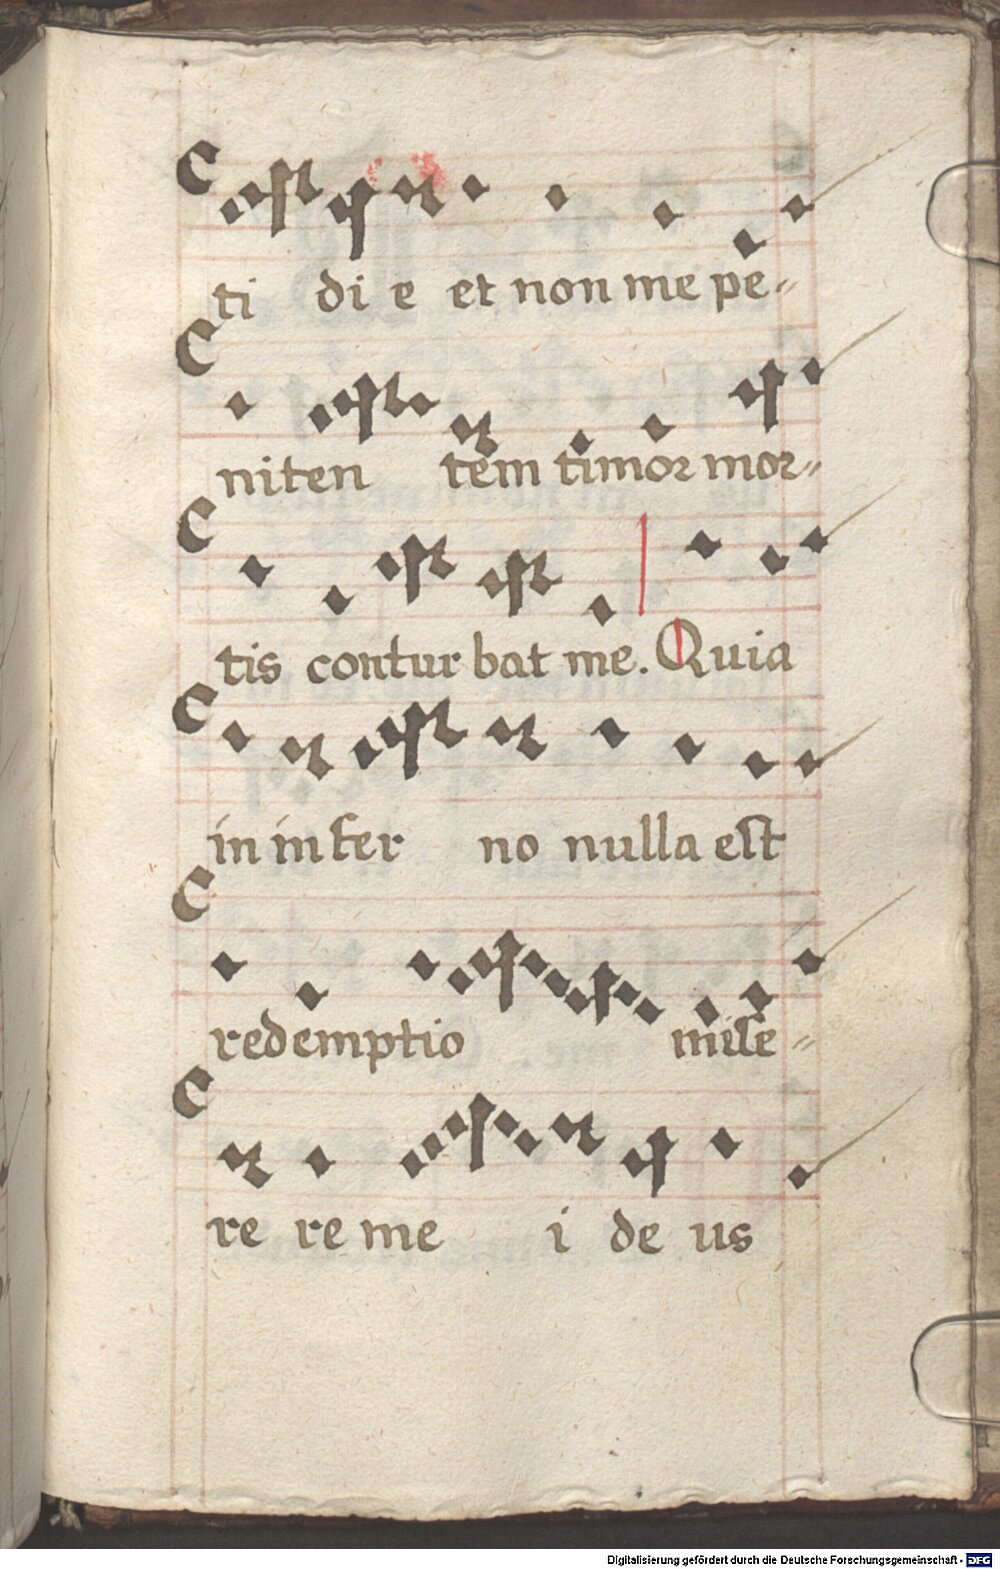 ti di e et non me pe-
niten tem timor mor-
tis contur bat me. Quia
in infer no nulla est
redemptio mise-
re re me i de us
Digitalisierung gefördert durch die Deutsche Forschungsgemeinschaft - DFG